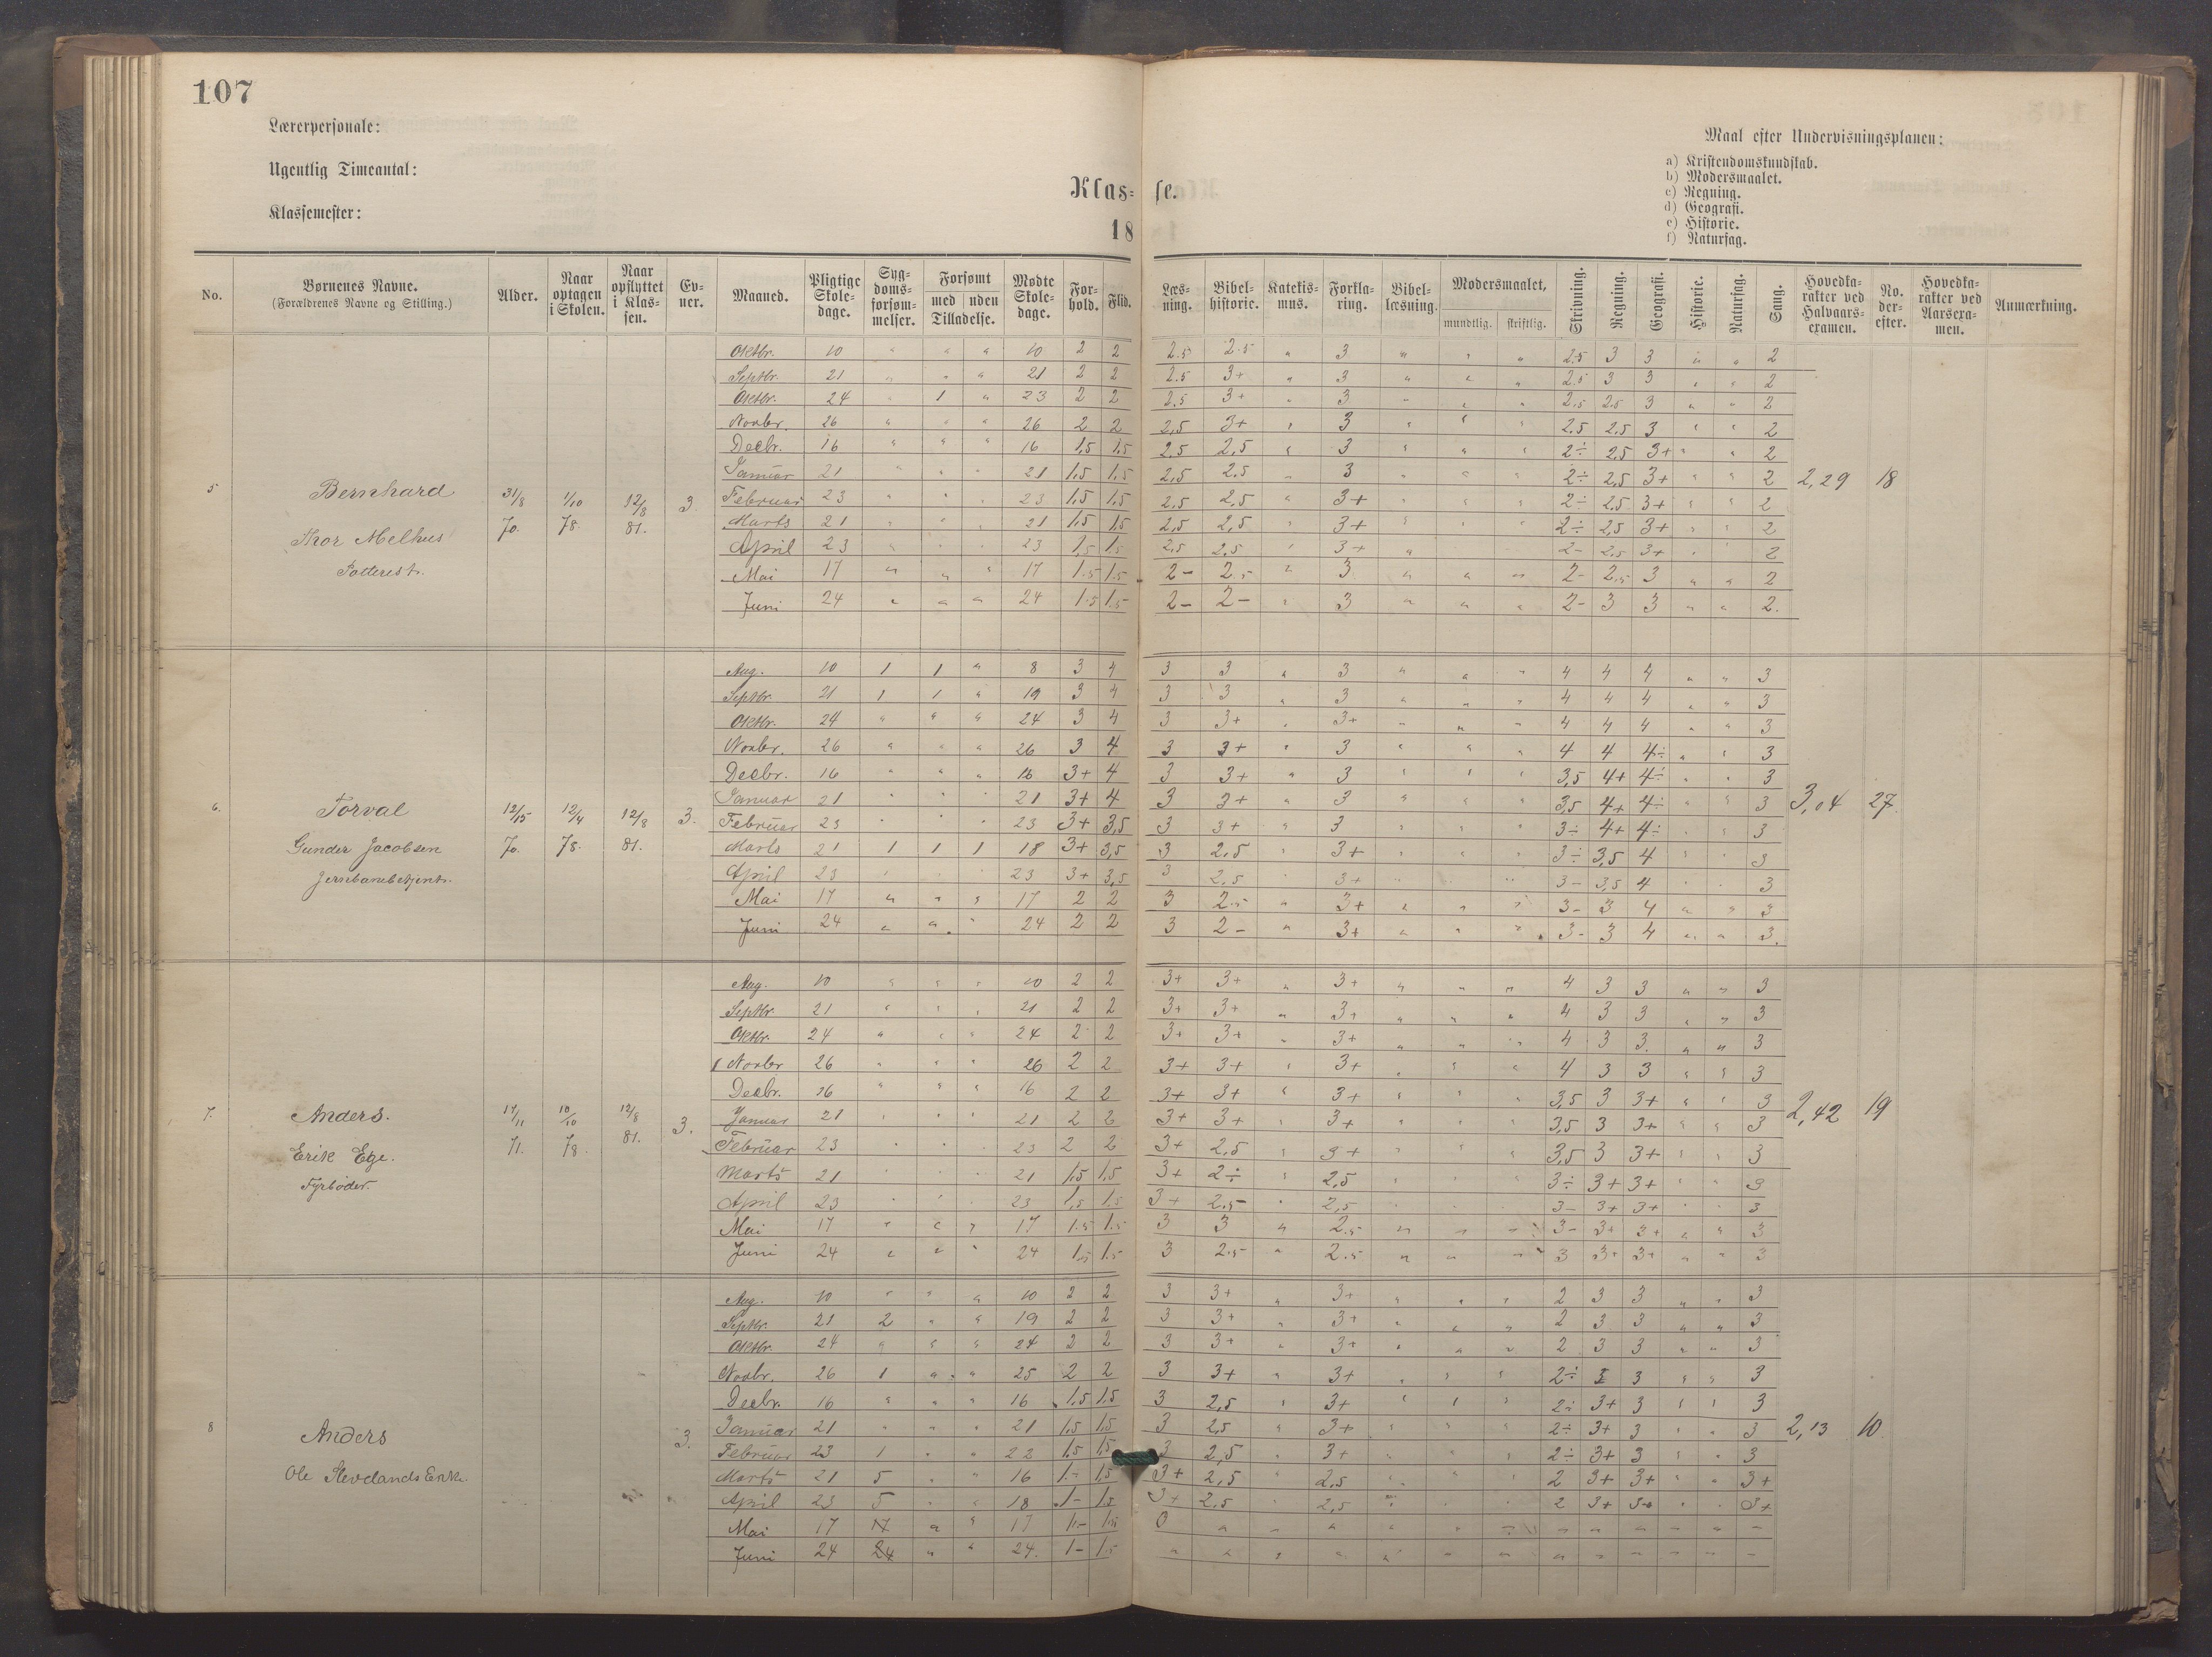 107
Lærerpersonale:
Ugentlig Timeantal:
Klassemester:
Klas- se.
18
Maal efter Undervisningsplanen:
a) Kristendomskundskab.
b) Modersmaalet.
c) Regning.
d) Geografi.
e) Historie.
f) Naturfag.
No. Børnenes Navne. (Forældrenes Navne og Stilling.) Alder. Naar optagen i Skolen. Naar opflyttet i Klassen. Evner. Maaned. Pligtige Skoledage. Sygdomsforsømmelser. Forsømt med uden Tilladelse. Mødte Skoledage. Forhold. Flid. Læsning. Bibelhistorie. Katekismus. Forklaring. Bibellæsning. Modersmaalet, mundtlig. skriftlig. Skrivning. Regning. Geografi. Historie. Naturfag. Sang. Hovedkarakter ved Halvaarsexamen. No. derefter. Hovedkarakter ved Aarsexamen. Anmærkning.
5 Bernhard 31/8 70. 1/10 78. 12/8 81. 3. 2,29 18
Thor Melhus
Oktbr. 10 " " " 10 2 2 2.5 2.5 " 3 " " " 2.5 3 3 " " 2
Septbr. 21 " " " 21 2 2 2.5 3+ " 3 " " " 2.5 3 3 " " 2
Oktbr. 24 " 1 " 23 2 2 2.5 3+ " 3 " " " 2.5 2.5 3 " " 2
Novbr. 26 " " " 26 2 2 2,5 3+ " 3 " " " 2,5 2,5 3 " " 2
Decbr. 16 " " " 16 1,5 1,5 2,5 2,5 " 3 " " " 2÷ 2,5 3+ " " 2
Januar 21 " " " 21 1,5 1,5 2,5 2,5 " 3 " " " 2÷ 2,5 3+ " " 2
Februar 23 " " " 23 1,5 1,5 2,5 2,5 " 3+ " " " 2÷ 2,5 3+ " " 2
Marts 21 " " " 21 1,5 1,5 2,5 2,5 " 3+ " " " 2÷ 2,5 3+ " " 2
April 23 " " " 23 1,5 1,5 2,5 2,5 " 3+ " 2- 2,5 3+ " " 2
Mai 17 " " " 17 1.5 1.5 2- 2.5 " 3 " " " 2- 2.5 3 " " 2
Juni 24 " " " 24 1.5 1.5 2- 2- " 3 " " " 2- 3 3 " " 2.
6. Torval 12/15 70. 12/4 78. 12/8 81. 3. 3,04 27.
Gunder Jacobsen
Jernbanebetjent.
Aug. 10 1 1 " 8 3 4 3 3 " 3 " " " 4 4 4 " " 3
Septbr. 21 1 1 " 19 3 4 3 3 " 3 " " " 4 4 4 " " 3
Oktbr. 24 " " " 24 3 4 3 3+ " 3+ " " " 4 4 4 " " 3
Novbr. 26 " " " 26 3 4 3 3+ " 3 " " " 4 4 4÷ " " 3
Decbr. 16 " " " 16 3+ 4 3 3+ " 3 " " " 3,5 4+ 4÷ " " 3
Januar 21 " " " 21 3+ 4 3 3+ " 3 " " " 3,5 4+ 4÷ " " 3
Februar 23 " " " 23 3+ 3,5 3 3+ " 3 " " " 3÷ 4+ 4÷ " " 3
Marts 21 1 1 1 18 3+ 3,5 3 2,5 " 3+ " " " 3÷ 3,5 4 " " 3
April 23 " " " 23 3+ 3,5 3 2,5 3+ " " 3- 3,5 4 " " 3
Mai 17 " " " 17 2 2 3 2.5 " 3+ " " " 3- 3 4 " " 3
Juni 24 " " " 24 2 2 3 2- " 3+ " " " 3- 3 4 " " 3.
7. Anders. 17/11 71. 10/10 78. 12/8 81. 3. 2,42 19
Erik Ege.
Fyrbøder.
Aug. 10 " " " 10 2 2 3+ 3+ " 3+ " " " 4 3 3 " " 3
Septbr. 21 " " " 21 2 2 3+ 3+ " 3+ " " " 4 3 3 " " 3
Oktbr. 24 " " " 24 2 2 3+ 3+ " 3+ " " " 4 3 3. " " 3
Novbr 26 " " " 26 2 2 3+ 3+ " 3+ " " " 4 3 3 " " 3
Decbr. 16 " " " 16 2 2 3+ 3+ " 3+ " " " 3,5 3 3+ " " 3
Januar 21 " " " 21 2 2 3+ 3+ " 3+ " " " 3,5 3 3+ " " 3
Februar 23 " " " 23 2 2 3+ 2,5 " 3+ " " " 3,5 3 3+ " " 3
Marts 21 " " " 21 1,5 1,5 3+ 2÷ " 2,5 " " " 3÷ 3+ 3+ " " 3
April 23 " " " 23 1,5 1,5 3+ 2.5 " 2,5 3- 3+ 3+ " " 3
Mai 17 " " " 17 1.5 1.5 3 3 " 2.5 " " " 3- 3+ 3+ " " 3
Juni 24 " " " 24 1.5 1.5 3 2.5 " 2.5 " " " 3 3+ 3+ " " 3
8 Anders 3. 2,13 10.
Ole
Aug. 10 " " " 10 2 2 3 3+ " 3+ " " " 2 3 3 " " 3
Septbr. 21 2 " " 19 2 2 3 3+ " 3+ " " " 2 3 3 " " 3
Oktbr. 24 " " " 24 2 2 3 3+ " 3+ " " " 2 3 3 " " 3
Novbr. 26 1 " " 25 2 2 3 3+ " 3+ " " " 2÷ 3 3 " " 3
Decbr. 16 " " " 16 1,5 1,5 3 2,5 " 3+ " " " 2÷ 3+ 3 " " 3
Januar 21 " " " 21 1,5 1,5 3 2,5 " 3+ " " " 2÷ 3+ 3 " " 3
Februar 23 1 " " 22 1,5 1,5 3 2,5 " 3+ " " " 2÷ 3+ 3 " " 3
Marts 21 5 " " 16 1.- 1,5 3+ 2,5 " 2,5 " " " 2 3+ 3+ " " 3+
April 23 5 " " 18 1- 1.5 3+ 2,5 " 2,5 " " " 2 3+ " " 3+
Mai 17 17 " " 17 1- 1.5 0 " " " " " " " " " " " -
Juni 24 24 " " 24. 1- 1.5 " " " " " " " " " " " " -